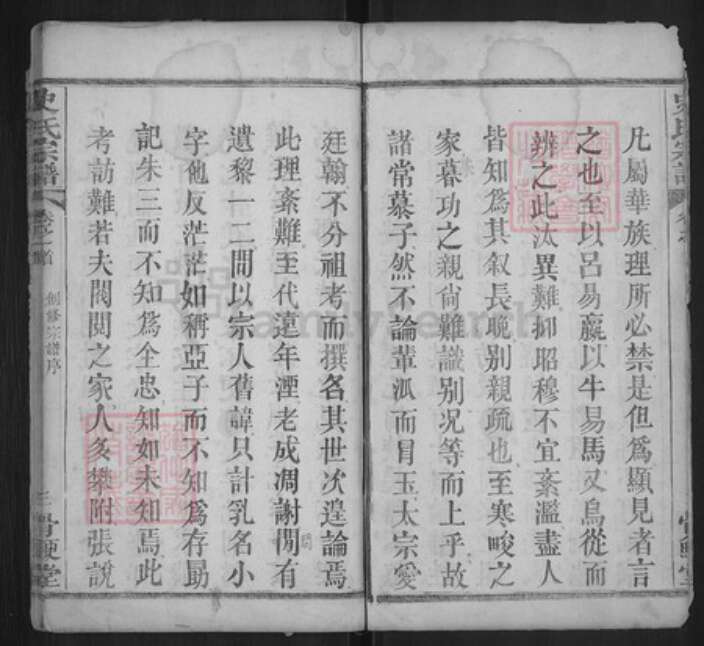 凡屬華族理所必禁是但爲顯見者言
之也至以呂易嬴以牛易馬又烏從而
辨之此汰異難抑昭穆不宜紊濫盡人
皆知爲其叙長晼别親疏也至寒畯之
家暮功之親尙難識别况等而上乎故
諸常慕子然不論輩派而冒玉太宗愛
廷翰不分祖考而撰各其世次遑論焉
此理紊難至代遠年湮老成凋謝間有
遺黎一二間以宗人舊諱只計乳名小
字他反茫茫如稱亞子而不知爲存勗
記朱三而不知爲全忠知如未知焉此
考訪難若夫閥閱之家人多攀附張說
史氏宗譜
卷之首
創修宗譜序
三
骨鯁堂